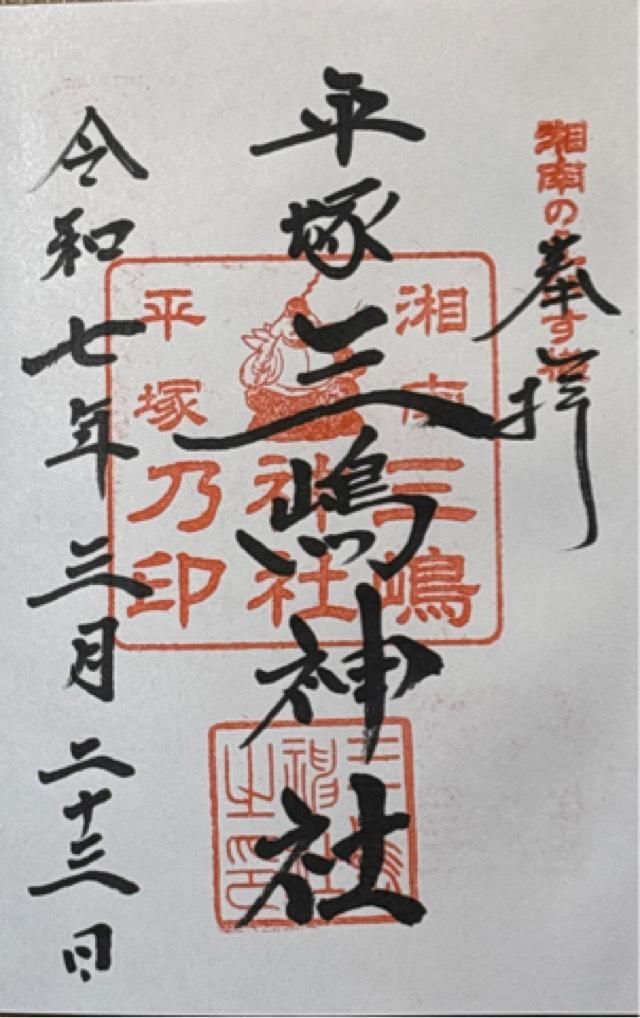 湘南の
奉拝
平塚三嶋神社
湘南
平塚
三嶋
神社
乃印
三嶋
神社
之印
令和七年三月二十三日